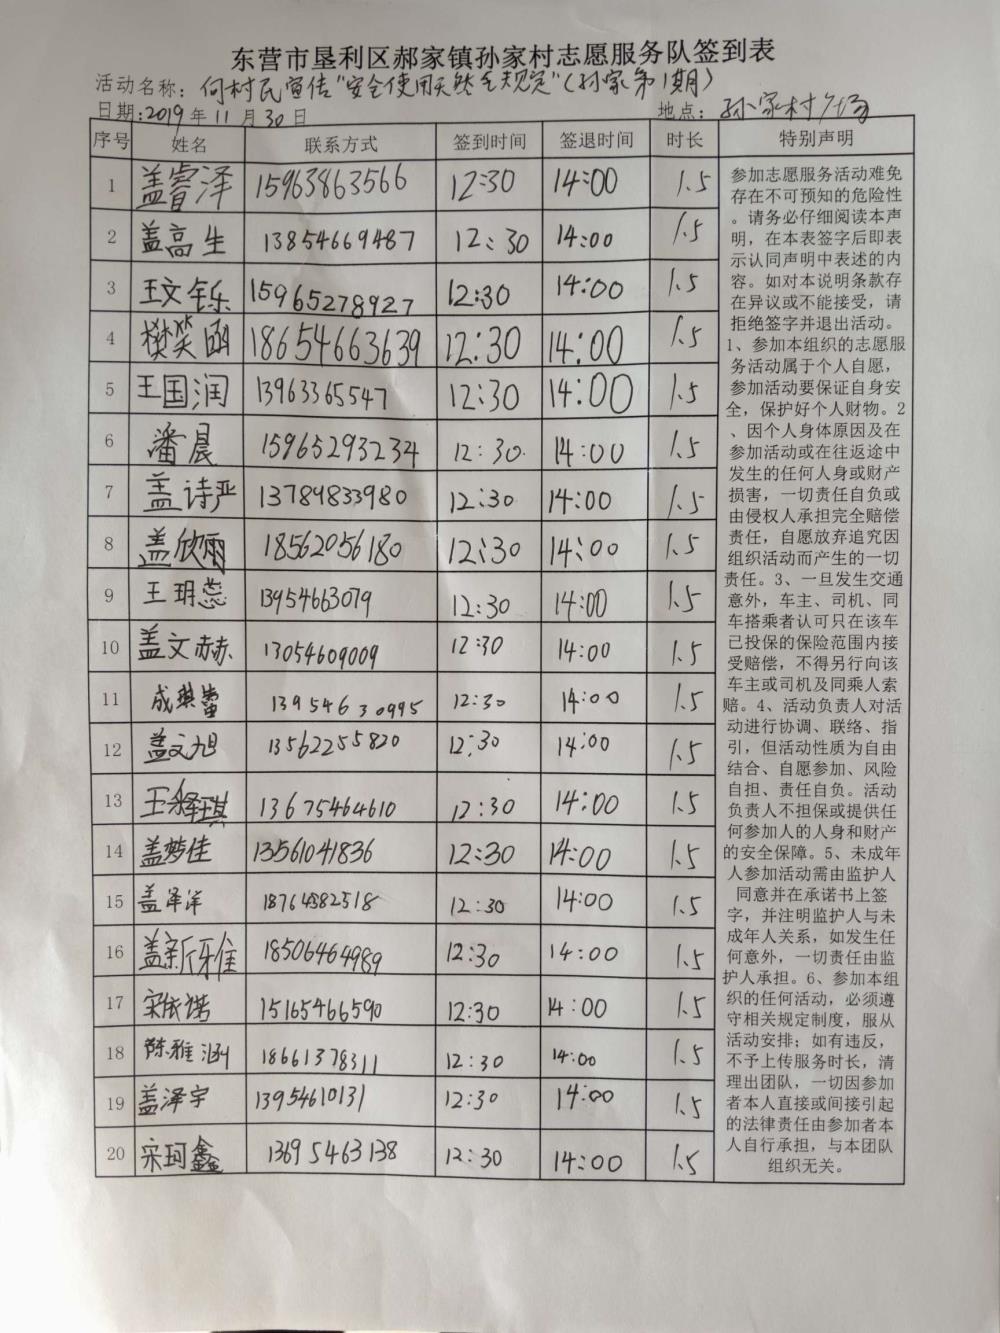 东营市垦利区郝家镇孙家村志愿服务队签到表
活动名称：何村民宣传"安全使用天然气规定"(孙家第1期)
日期:2019年11月30日 地点：孙家村广场
序号 姓名 联系方式 签到时间 签退时间 时长 特别声明
1 盖睿泽 15963863566 12:30 14:00 1.5
2 盖高生 13854669487 12:30 14:00 1.5
3 王文铄 15965278927 12:30 14:00 1.5
4 樊笑函 18654663639 12:30 14:00 1.5
5 王国润 13963365547 12:30 14:00 1.5
6 潘晨 159652932334 12:30 14:00 1.5
7 盖诗严 13789833980 12:30 14:00 1.5
8 盖欣雨 18562056180 12:30 14:00 1.5
9 王玥蕊 13954663079 12:30 14:00 1.5
10 盖文赫 13054609009 12:30 14:00 1.5
11 成琪蕾 13954630995 12:30 14:00 1.5
12 盖文旭 13562255820 12:30 14:00 1.5
13 王绎琪 13675464610 12:30 14:00 1.5
14 盖梦佳 13561041836 12:30 14:00 1.5
15 盖泽洋 18764382518 12:30 14:00 1.5
16 盖新雅 18506464989 12:30 14:00 1.5
17 宋依诺 15165466590 12:30 14:00 1.5
18 陈雅涵 18661378311 12:30 14:00 1.5
19 盖泽宇 13954610131 12:30 14:00 1.5
20 宋珂鑫 13695463138 12:30 14:00 1.5
参加志愿服务活动难免
存在不可预知的危险性
。请务必仔细阅读本声
明，在本表签字后即表
示认同声明中表述的内
容。如对本说明条款存
在异议或不能接受，请
拒绝签字并退出活动。
1、参加本组织的志愿服
务活动属于个人自愿，
参加活动要保证自身安
全，保护好个人财物。2
、因个人身体原因及在
参加活动或在往返途中
发生的任何人身或财产
损害，一切责任自负或
由侵权人承担完全赔偿
责任，自愿放弃追究因
组织活动而产生的一切
责任。3、一旦发生交通
意外，车主、司机、同
车搭乘者认可只在该车
已投保的保险范围内接
受赔偿，不得另行向该
车主或司机及同乘人索
赔。4、活动负责人对活
动进行协调、联络、指
引，但活动性质为自由
结合、自愿参加、风险
自担、责任自负。活动
负责人不担保或提供任
何参加人的人身和财产
的安全保障。5、未成年
人参加活动需由监护人
同意并在承诺书上签
字，并注明监护人与未
成年人关系，如发生任
何意外，一切责任由监
护人承担。6、参加本组
织的任何活动，必须遵
守相关规定制度，服从
活动安排；如有违反，
不予上传服务时长，清
理出团队，一切因参加
者本人直接或间接引起
的法律责任由参加者本
人自行承担，与本团队
组织无关。